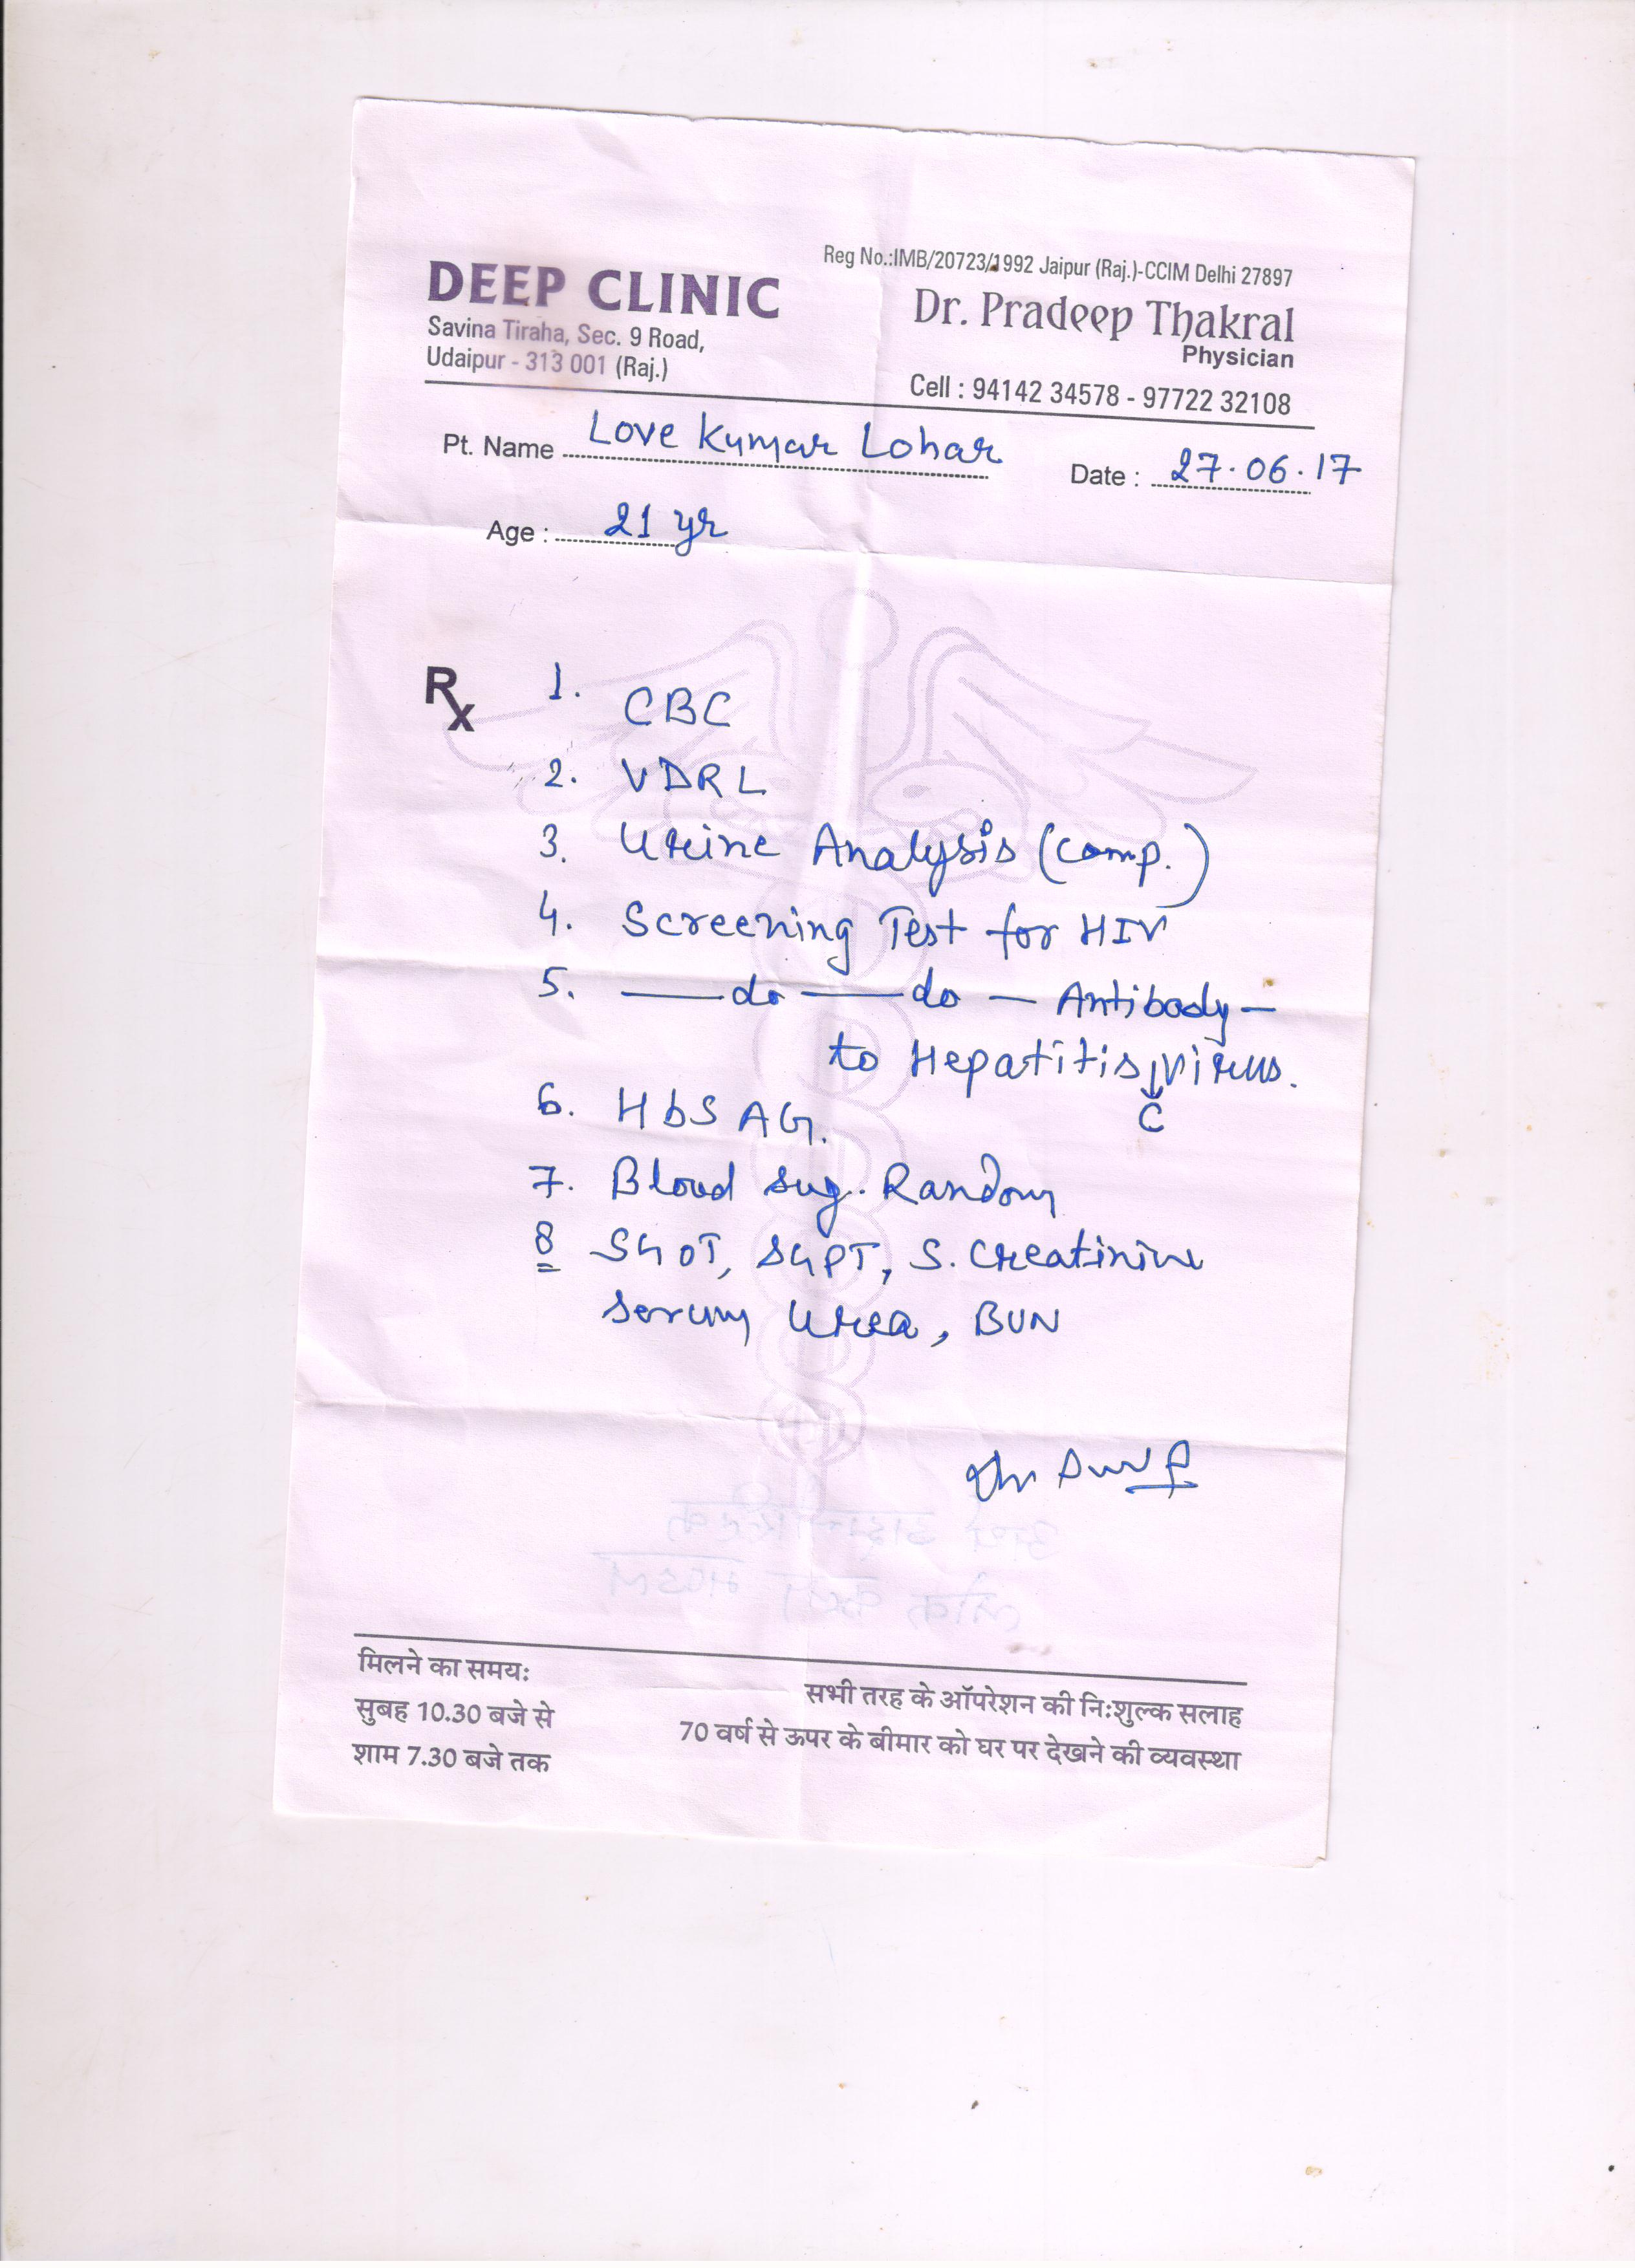 DEEP CLINIC
Savina Tiraha, Sec. 9 Road,
Udaipur - 313 001 (Raj.)
Reg No.:IMB/20723/1992 Jaipur (Raj.)-CCIM Delhi 27897
Dr. Pradeep Thakral
Physician
Cell : 94142 34578 - 97722 32108
Pt. Name Love Kumar Lohar
Date : 27.06.17
Age : 21 yr
Rx
1. CBC
2. VDRL
3. Urine Analysis (Comp.)
4. Screening Test for HIV
5. —do—do — Antibody —
to Hepatitis C virus.
6. HbS AG.
7. Blood Sug. Random
8 SGOT, SGPT, S. Creatinine
Serum Urea, BUN
मिलने का समयः
सुबह 10.30 बजे से
शाम 7.30 बजे तक
सभी तरह के ऑपरेशन की निःशुल्क सलाह
70 वर्ष से ऊपर के बीमार को घर पर देखने की व्यवस्था